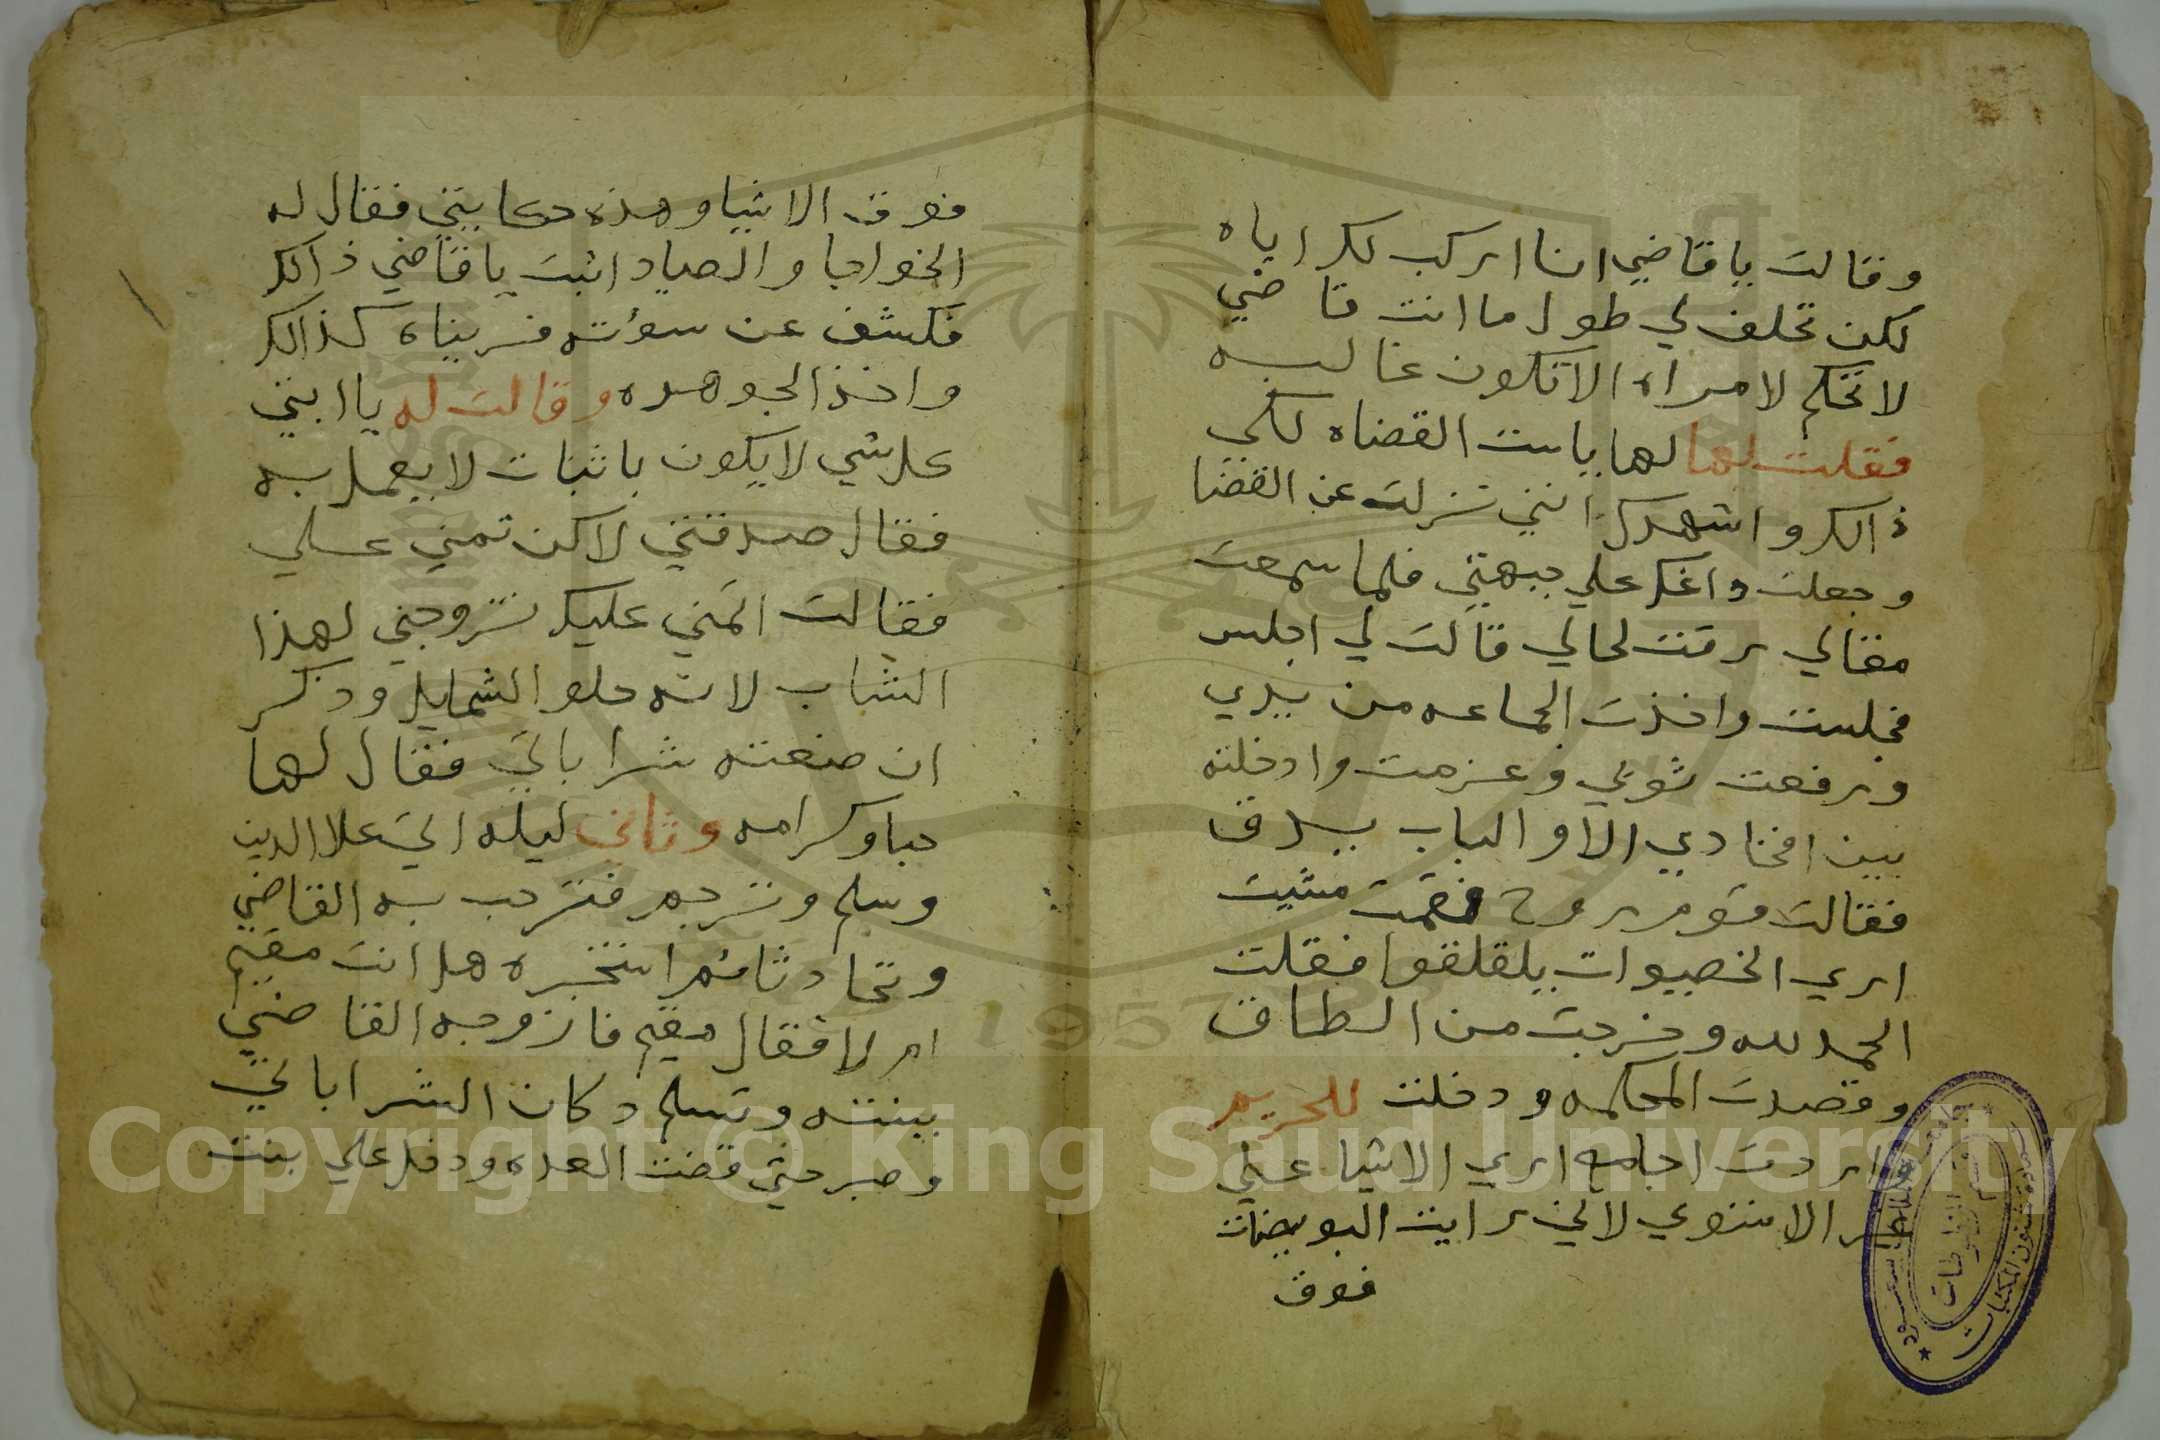 وقالت ياقاضي انا اركب لك اياه
لكن تحلف لي طول ما انت قاضي
لا تحكم لامراه الا تكون غالبه
فقلت لها لها ياست القضاه لكي
ذالك واشهدك انني نزلت عن القضا
وجعلت داغك علي جبهتي فلما سمعت
مقالي رقت لحالي قالت لي اجلس
فجلست واخذت الجماعه من يدي
ورفعت ثوبي وعزمت وادخلته
بين افخادي الا والباب يدق
فقالت قوم روح فقمت مشيت
اري الخصيوات يلقلقوا فقلت
الحمد لله وخرجت من الطاق
وقصدت المحكمه ودخلت للحريم
واردت اجامع اري الاشيا علي
الاستوي لاني رايت البويضات
فوق
فوق الاشيا وهذه حكايتي فقال له
الخواجا والصياد اثبت ياقاضي ذالك
فكشف عن سوءته فريناه كذالك
واخذ الجوهره وقالت له يا ابتي
كل شي لا يكون باثبات لا يعمل به
فقال صدقتي لاكن تمني علي
فقالت اتمني عليك تزوجني لهذا
الشاب لانه حلو الشمايل ودكر
ان صنعته شراباتي فقال لها
حبا وكرامه وثاني ليله اتي علا الدين
وسلم وترجم فترحب به القاضي
وتحادثا ثم استخبره هل انت مقيم
ام لا فقال مقيم فازوجه القاضي
ببنته وتسلم دكان الشراباتي
وصبر حتي قضت العده ودخل علي بنت
Copyright © King Saud University
1957